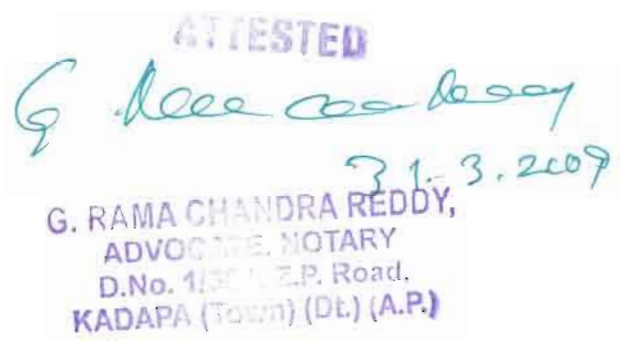 ATTESTED
G Rama Chandra Reddy
31.3.2009
G. RAMA CHANDRA REDDY,
ADVOCATE. NOTARY
D.No. E.P. Road,
KADAPA (Town) (Dt.) (A.P.)